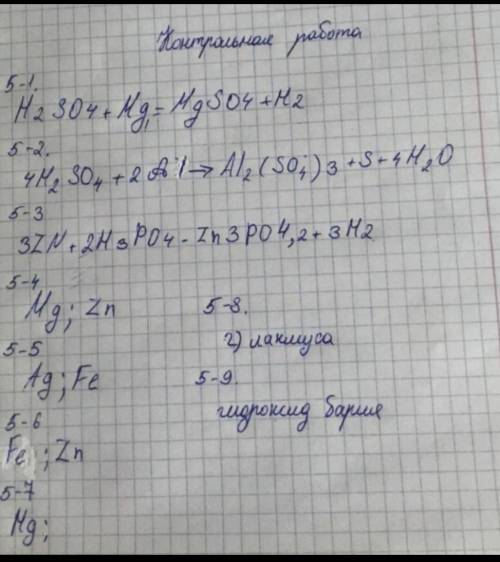 Контрольная работа
5-1.
H2SO4+Mg=MgSO4+H2
5-2.
4H2SO4+2Al→Al2(SO4)3+S+4H2O
5-3
3ZN+2H3PO4-Zn3PO4,2+3H2
5-4
Mg; Zn
5-5
Ag; Fe
5-6
Fe; Zn
5-7
Mg;
5-8.
г) лакмуса
5-9.
гидроксид бария